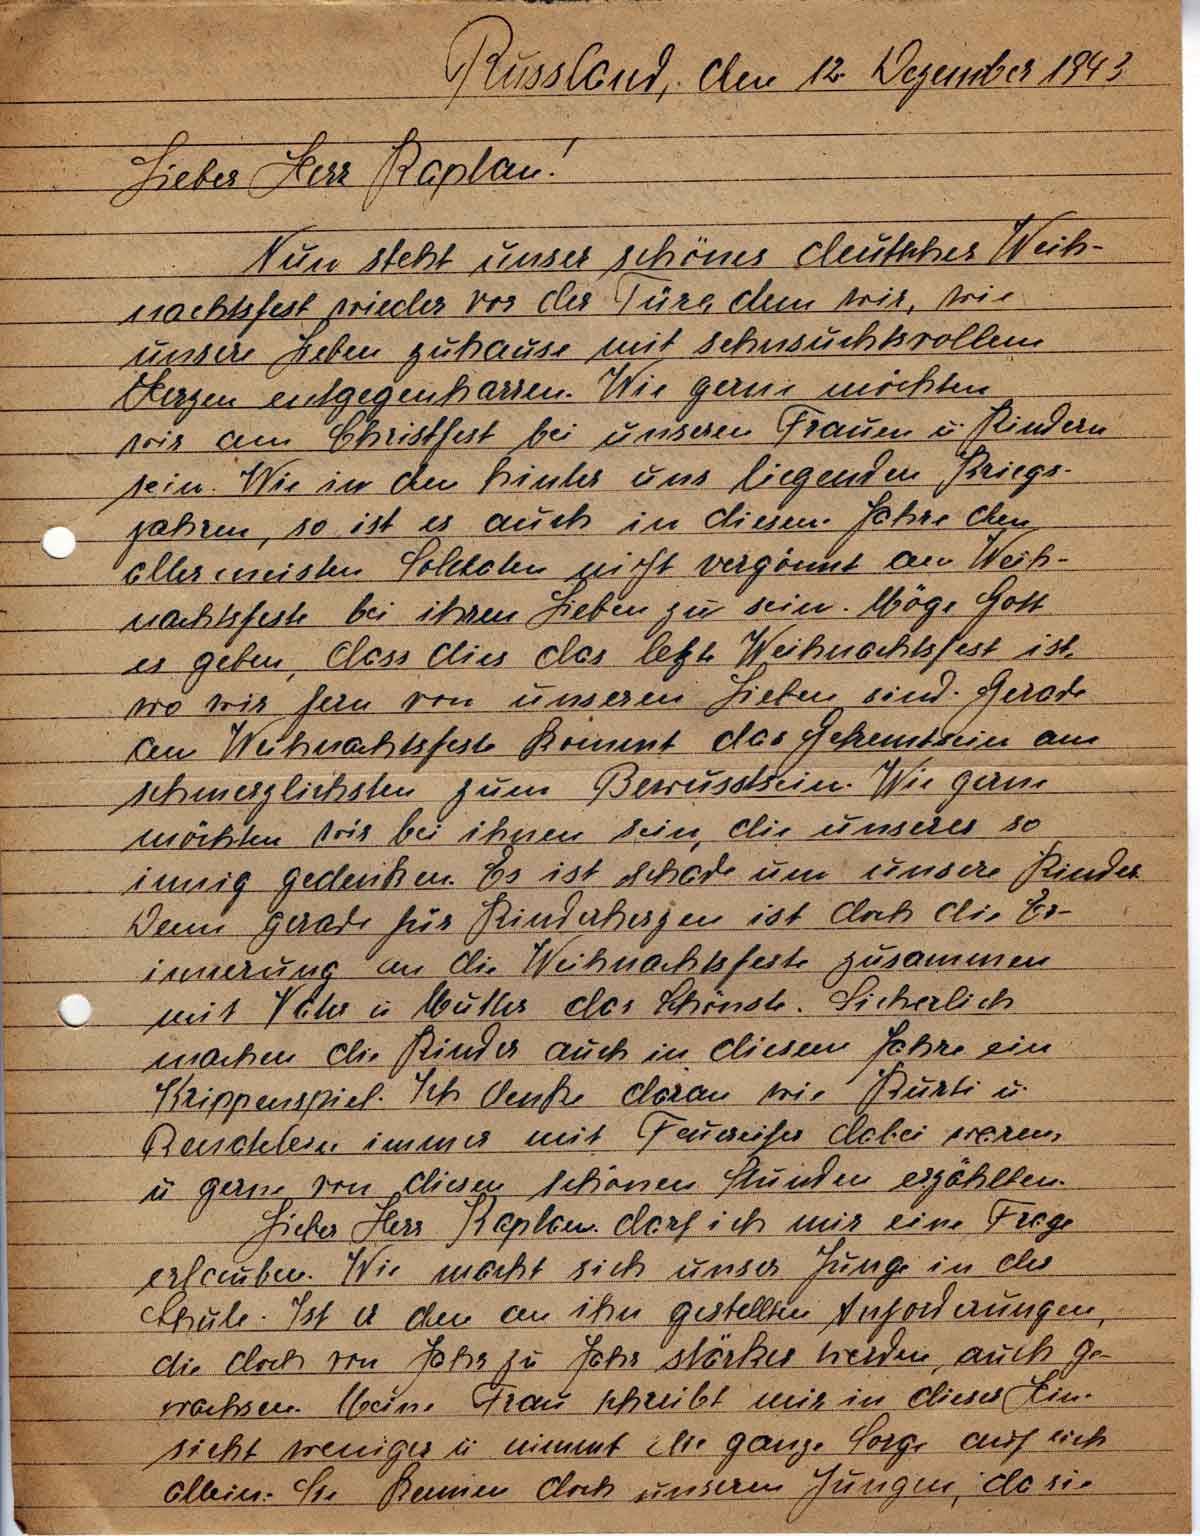 Russland, den 12. Dezember 1943
Lieber Herr Kaplan!
Nun steht unser schönes deutsches Weih-
nachtsfest wieder vor der Türe dem wir, wie
unsere Lieben zuhause mit sehnsuchtsvollem
Herzen entgegenharren. Wie gerne möchten
wir am Christfest bei unseren Frauen u Kindern
sein. Wie in den hinter uns liegenden Kriegs-
jahren, so ist es auch in diesem Jahre den
allermeisten Soldaten nicht vergönnt am Weih-
nachtsfeste bei ihren Lieben zu sein. Möge Gott
es geben, dass dies das letzte Weihnachtsfest ist,
wo wir fern von unseren Lieben sind. Gerade
am Weihnachtsfeste kommt das Getrenntsein am
schmerzlichsten zum Bewusstsein. Wie gerne
möchten wir bei ihnen sein, die unserer so
innig gedenken. Es ist schade um unsere Kinder
Denn gerade für Kinderherzen ist doch die Er-
innerung an die Weihnachtsfeste zusammen
mit Vater u Mutter das Schönste. Sicherlich
machen die Kinder auch in diesem Jahre ein
Krippenspiel. Ich denke daran wie Kurti u
immer mit Feuereifer dabei waren,
u gerne von diesen schönen Stunden erzählten.
Lieber Herr Kaplan. darf ich mir eine Frage
erlauben. Wie macht sich unser Junge in der
Schule. Ist er den an ihn gestellten Anforderungen,
die doch von Jahr zu Jahr stärker werden, auch ge-
wachsen. Meine Frau schreibt mir in dieser Hin-
sicht weniger u nimmt die ganze Sorge auf sich
allein. Sie kennen doch unseren Jungen, da sie